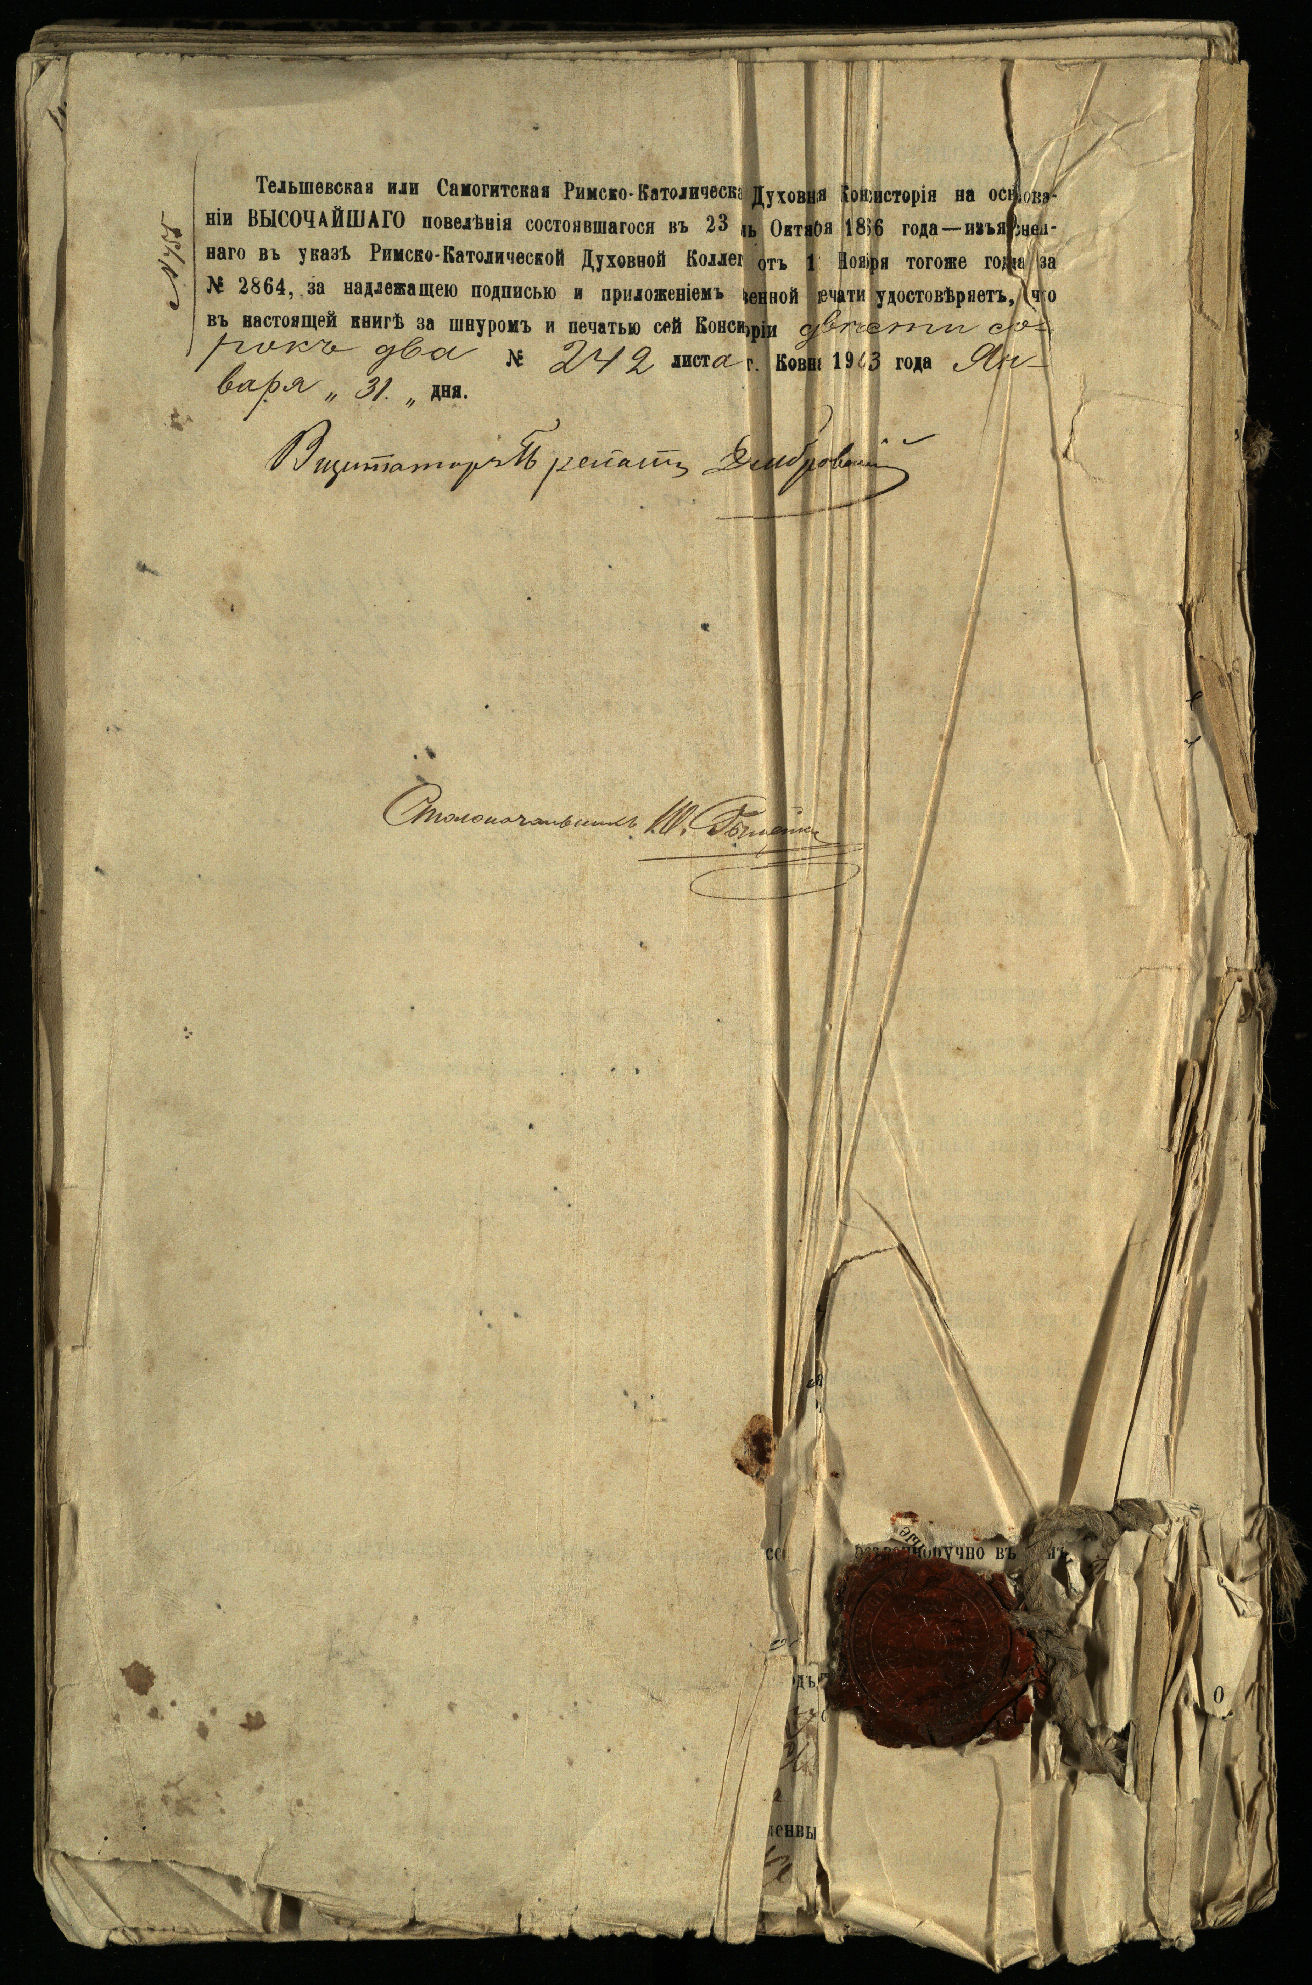 № 755
Тельшевская или Самогитская Римско-Католическа Духовня Консисторія на основа-
ніи ВЫСОЧАЙШАГО повелѣнія состоявшагося въ 23 нь Октября 1866 года—изъяснен-
наго въ указѣ Римско-Католической Духовной Коллег отъ 1 Ноября тогоже года за
№ 2864, за надлежащею подписью и приложеніемъ венной печати удостовѣряетъ, что
въ настоящей книгѣ за шнуромъ и печатью сей Консиоріи двѣсти со-
рокъ два № 242 листа г. Ковна 1903 года Ян-
варя „ 31. „ дня.
Визитаторъ Прелатъ Домбровскій
Столоначальникъ
норучно въ
одъ
енны
0